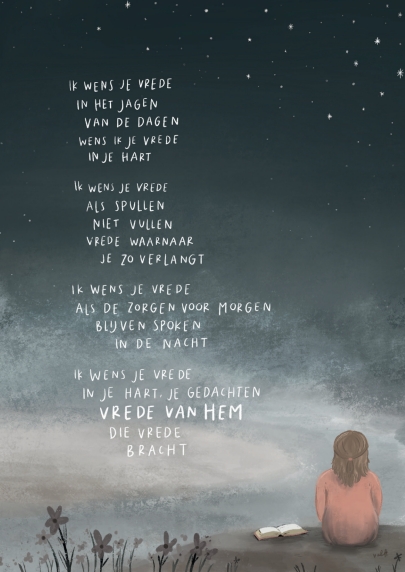 IK WENS JE VREDE
IN HET JAGEN
VAN DE DAGEN
WENS IK JE VREDE
IN JE HART
IK WENS JE VREDE
ALS SPULLEN
NIET VULLEN
VREDE WAARNAAR
JE ZO VERLANGT
IK WENS JE VREDE
ALS DE ZORGEN VOOR MORGEN
BLIJVEN SPOKEN
IN DE NACHT
IK WENS JE VREDE
IN JE HART, JE GEDACHTEN
VREDE VAN HEM
DIE VREDE
BRACHT